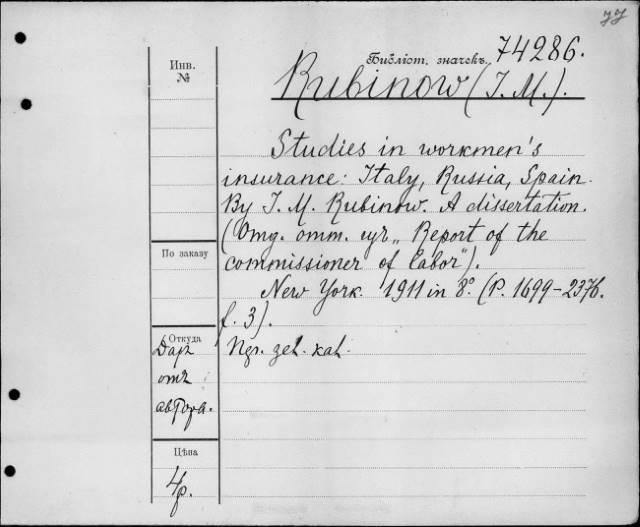 77
Библіот. значекъ. 74286.
Rubinow (I. M.).
Инв.
№
Studies in workmen's
insurance: Italy, Russia, Spain.
By I. M. Rubinow. A dissertation.
(Отд. отт. изъ „ Report of the
commissioner of labor").
New York. 1911 in 8º. (P. 1699–2376.
f. 3).
По заказу
Откуда
Даръ
отъ
автора.
Цѣна
4р.